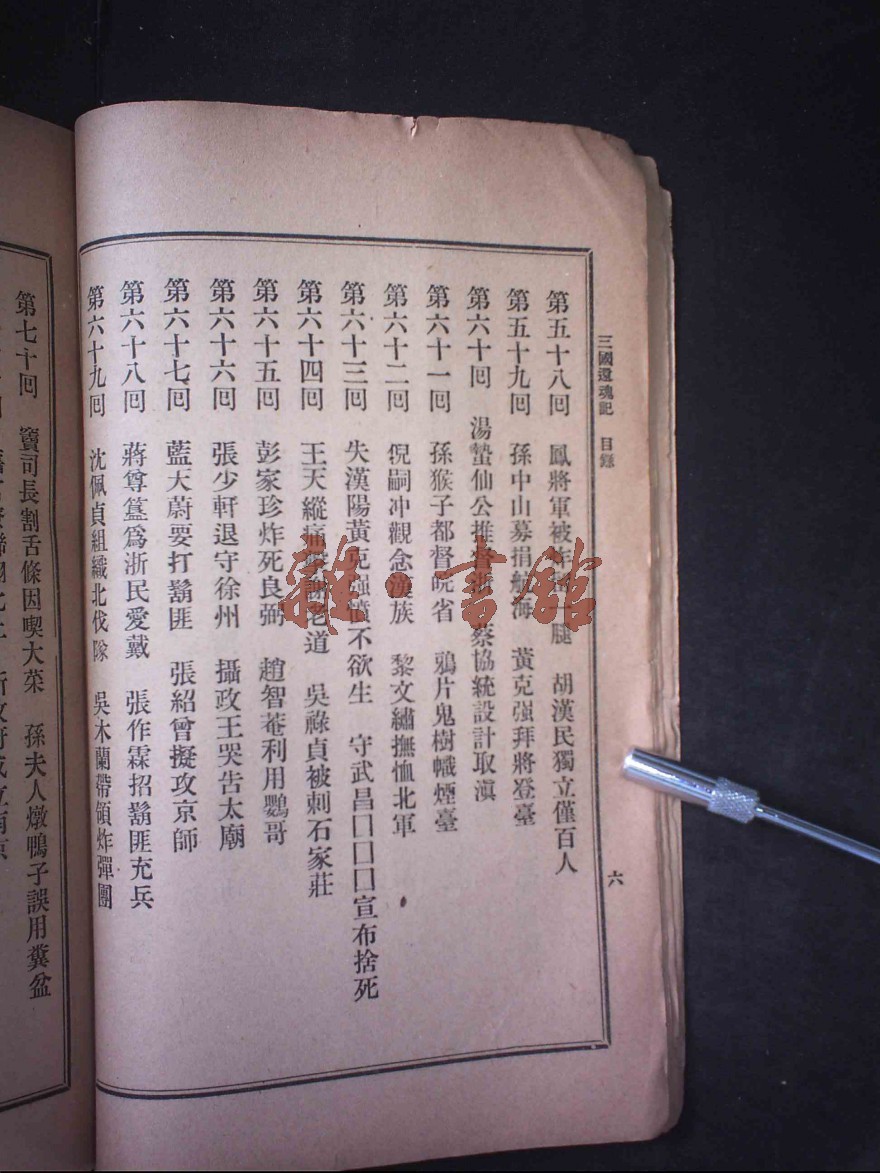 三國還魂記 目錄
六
第五十八回 鳳將軍被炸 腿 胡漢民獨立僅百人
第五十九回 孫中山募捐航海 黃克强拜將登臺
第六十回 湯蟄仙公推督浙 蔡協統設計取滇
第六十一回 孫猴子都督皖省 鴉片鬼樹幟煙臺
第六十二回 倪嗣冲觀念漢族 黎文繡撫恤北軍
第六十三回 失漢陽黃克强憤不欲生 守武昌囗囗囗宣布捨死
第六十四回 王天縱痛 謝老道 吳祿貞被刺石家莊
第六十五回 彭家珍炸死良弼 趙智菴利用鸚哥
第六十六回 張少軒退守徐州 攝政王哭告太廟
第六十七回 藍天蔚要打鬍匪 張紹曾擬攻京師
第六十八回 蔣尊簋爲浙民愛戴 張作霖招鬍匪充兵
第六十九回 沈佩貞組織北伐隊 吳木蘭帶領炸彈團
第七十回 竇司長割舌條因喫大菜 孫夫人燉鴨子誤用糞盆
雜·書館